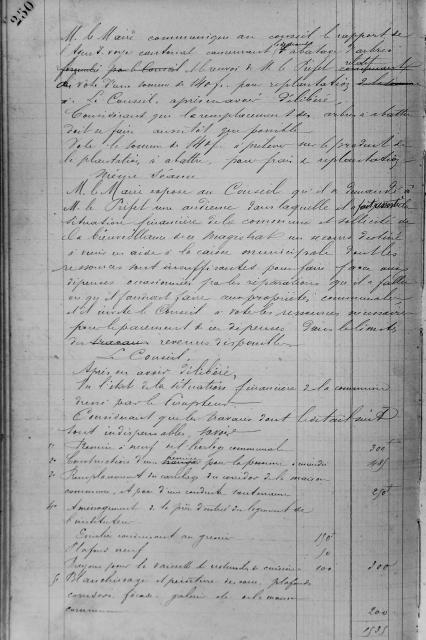 250
M. le Maire communique au conseil le rapport de
l'agent voyer cantonal concernant l'abatage d'arbres
formulé par le Conseil de M. le Préfet relatif
au vote d'une somme de 140 f. pour replantation
Le Conseil, après en avoir délibéré,
Considérant que le remplacement des arbres à abattre
doit se faire aussitôt que possible
Vote la somme de 140 f. à prélever sur le produit de
la plantation à abattre, pour frais de replantation
Même séance
M. le Maire expose au Conseil qu'il a demandé à
M. le Préfet une audience dans laquelle il a fait
situation financière de la commune et sollicité de
la bienveillance de ce magistrat un secours destiné
à venir en aide à la caisse municipale dont les
ressources sont insuffisantes pour faire face aux
dépenses occasionnées par les réparations qu'il a fallu
ou qu'il faudrait faire aux propriétés communales,
et il invite le Conseil à voter les ressources nécessaires
pour le paiement de ces dépenses dans les limites
des revenus disponibles.
Le Conseil,
Après en avoir délibéré,
Vu l'état de la situation financière de la commune
dressé par le Comptable
Considérant que les travaux dont le détail suit
sont indispensables, savoir
1° Remise à neuf de l'horloge communal 300 f
2° Construction d'une remise pour la pompe à incendie 485
3° Remplacement du carrelage du corridor de la maison
commune et pose d'une conduite souterraine 250 f
4° Aménagement de la pièce d'entrée du logement de
l'instituteur
Escalier conduisant au grenier 150 f
Plafond neuf 50
Rayons pour la vaisselle et ustensiles de cuisine 100 300
5° Blanchissage et peinture des murs, plafonds
corridor façade galerie de la maison
commune 200
1535